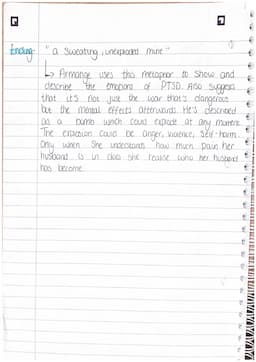 Ending: "a sweating, unexploded mine"
↳ Armange uses this metaphor to show and
describe the emotions of PTSD. Also suggests
that it's not just the war that's dangerous
but the mental effects afterwards. He's described
as a bomb which could explode at any moment.
The explosion could be anger, violence, self-harm.
Only when she understands how much pain her
husband is in does she realise who her husband
has become.